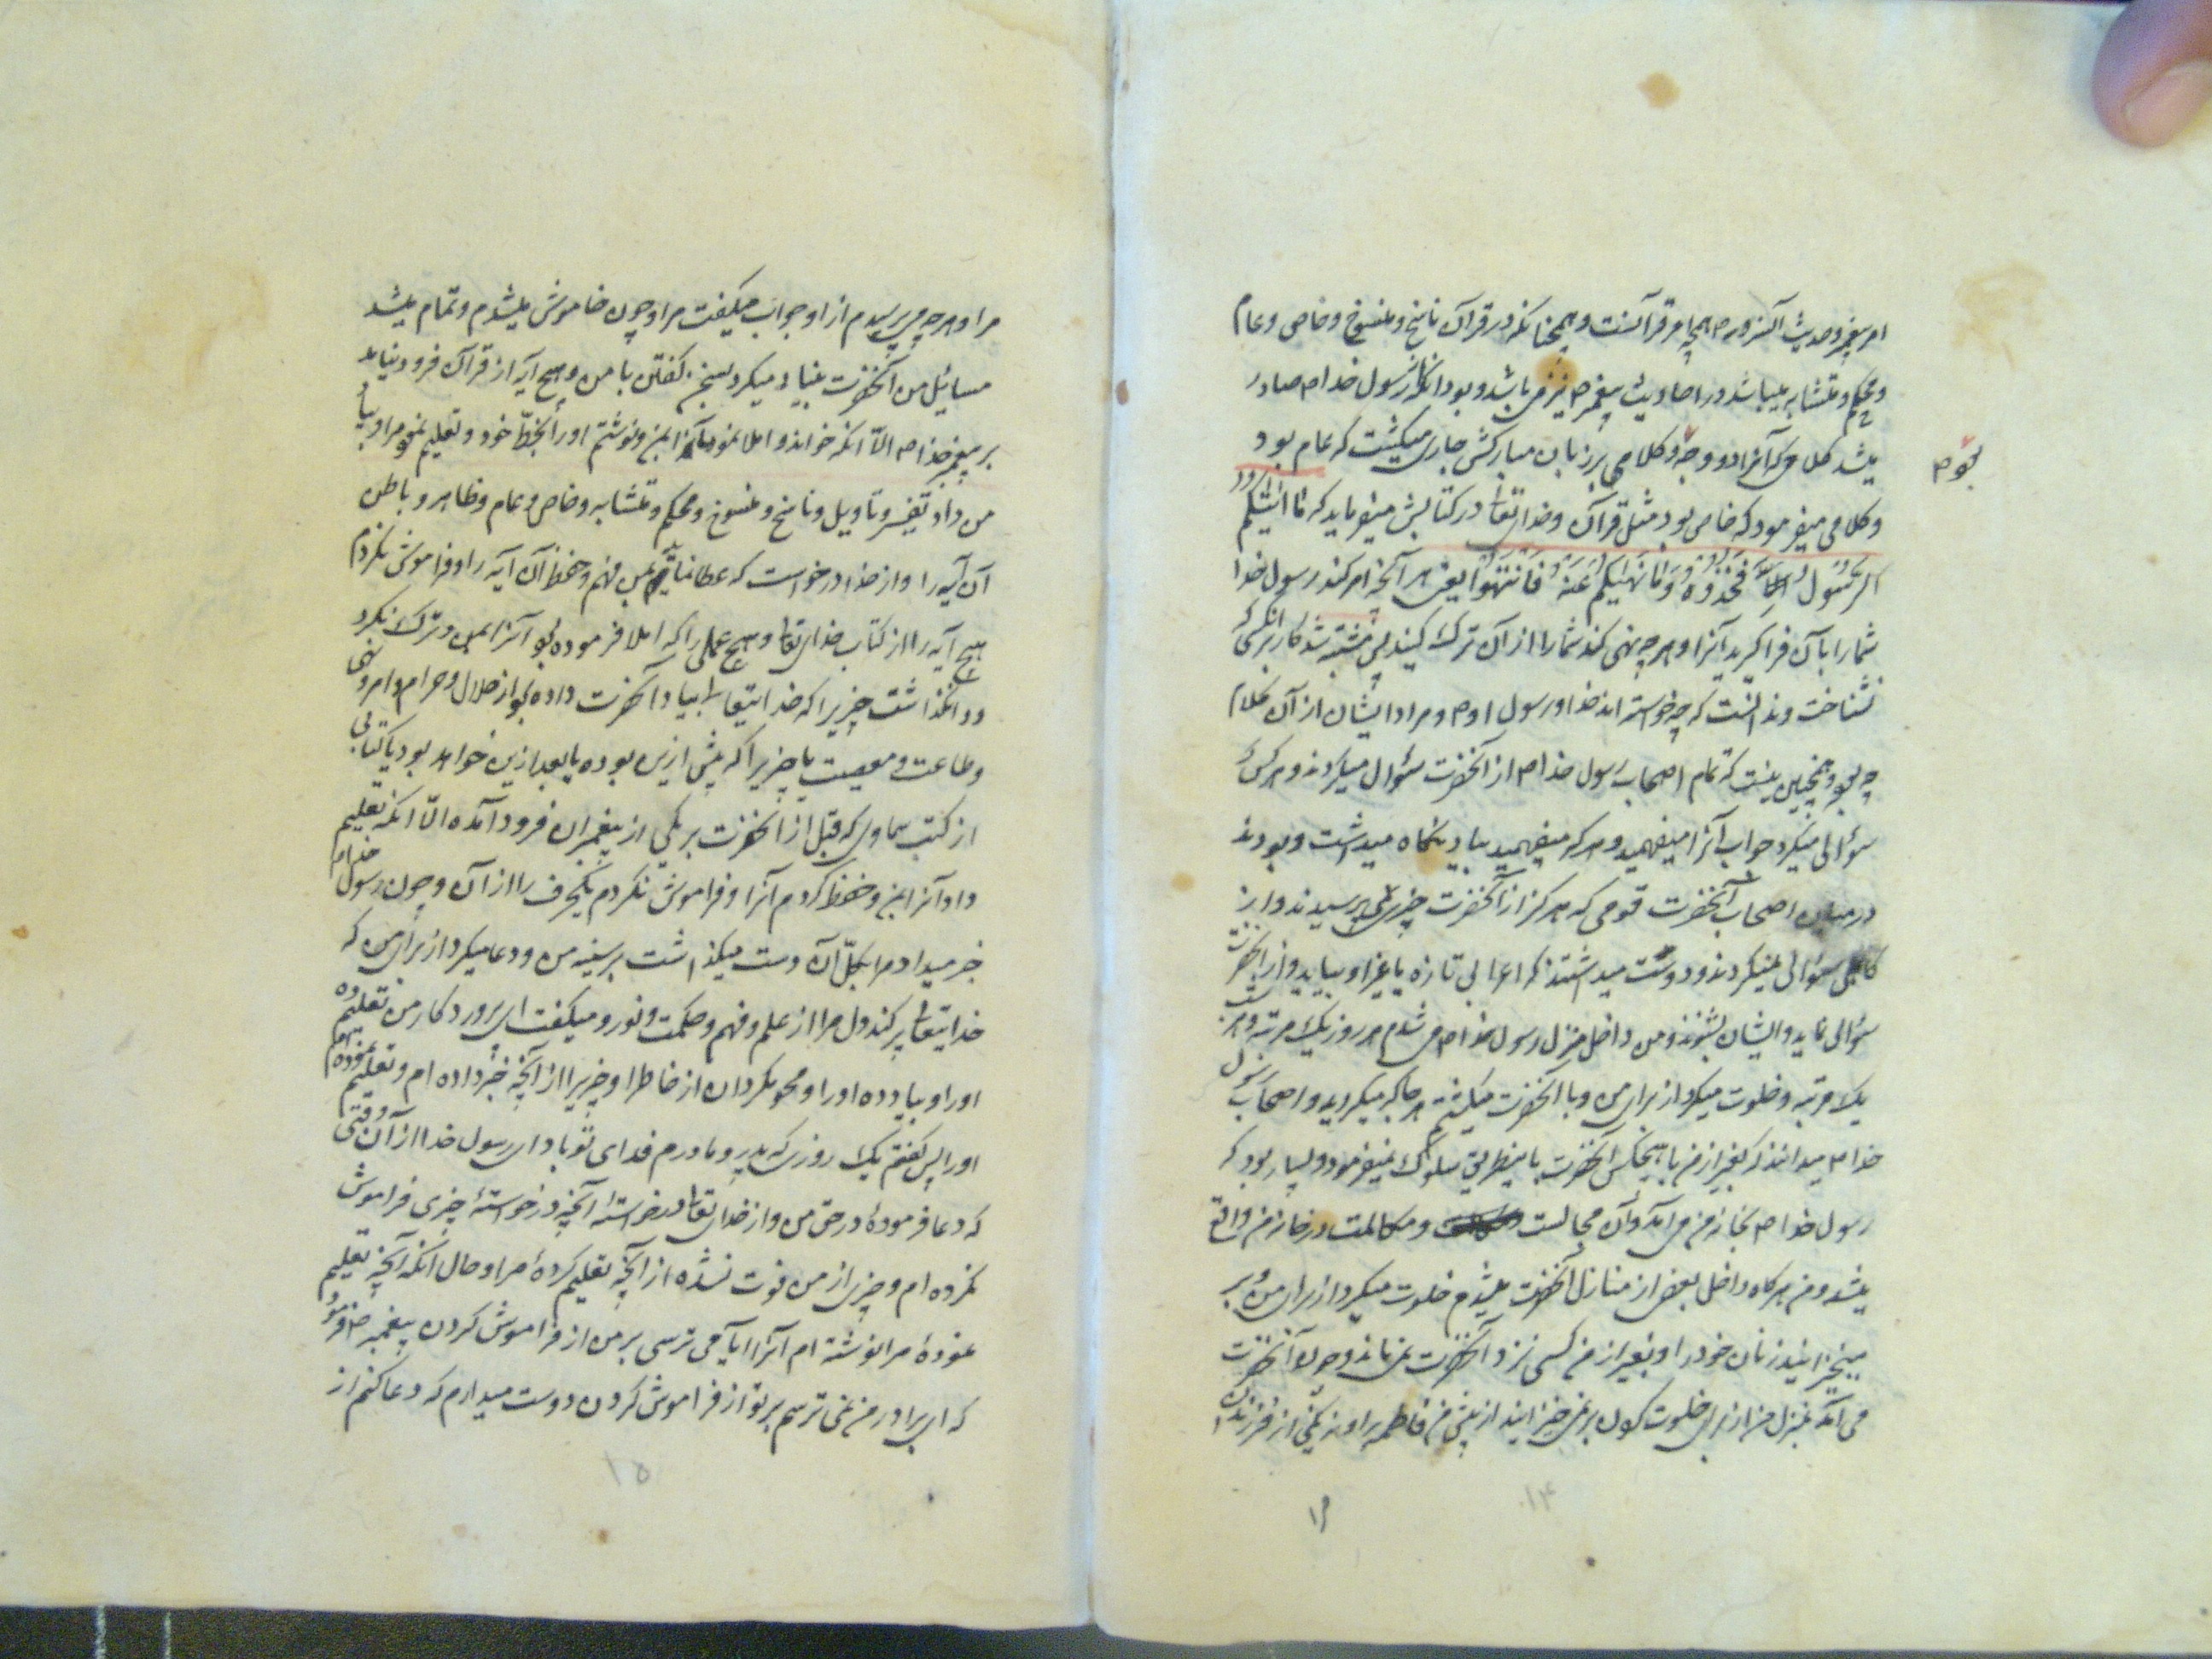 امر پیغمبر و حدیث آنسرور ص همچو امر قرآنست و همچنانکه در قرآن ناسخ و منسوخ و خاص و عام
و محکم و متشابه میباشد در احادیث پیغمبر ص نیز می باشد و بود آنکه از رسول خدا ص صادر
میشد کلامی که آنرا دو وجه و کلامی بر زبان مبارکش جاری میگشت که عام بود
و کلامی میفرمود که خاص بود مثل قرآن و خدای تعا در کتابش میفرماید که ما اتیکم
الرَّسُولُ فَخُذُوهُ وَمَا نَهَیکُم عَنْهُ فَانْتَهُوا یعنی هر آنچه امر کند رسول خدا
شما را بآن فرا گیرید آنرا و هر چه نهی کند شما را از آن ترک کنید پس مشتبه شد کار بر آنکس که
نشناخت و ندانست که چه خواسته اند خدا و رسول او ص و مراد ایشان از آن کلام
چه بود و همچنین نیست که تمام اصحاب رسول خدا ص از آنحضرت سؤال میکردند و هر کس که
سؤالی میکرد جواب آنرا میفهمید و هر که میفهمید بیاد نگاه میداشت و بودند
در میان اصحاب آنحضرت قومی که هرگز از آنحضرت چیزی نمی پرسیدند و از
سؤالی نمیکردند و دوست میداشتند که اعرابی تازه یا غیر او بیاید و از آنحضرت
سؤالی نماید و ایشان بشنوند و من داخل منزل رسول خدا ص می شدم هر روز یک مرتبه و هر شب
یک مرتبه و خلوت میکرد از برای من و با آنحضرت میگشتم هر جا که میگردید و اصحاب رسول
خدا ص میدانند که بغیر از من با هیچکس آنحضرت باینطریق سلوک نمیفرمود و بسیار بود که
رسول خدا ص بخانه من می آمد و آن مجالست و مکالمت در خانه من واقع
میشد و من هرگاه داخل بعضی از منازل آنحضرت میشدم خلوت میکرد از برای من و بر
میخیزانید زنان خود را و بغیر از من کسی نزد آنحضرت نمی ماند و چون آنحضرت
می آمد بمنزل من از برای خلوت کردن بر نمی خیزانید از پیش من فاطمه را و نه یکی از فرزندان
بود ص
۱۴
مرا و هر چه می پرسیدم از او جواب میگفت مرا و چون خاموش میشدم و تمام میشد
مسائل من آنحضرت بنیاد میکرد بسخن گفتن با من و هیچ آیه از قرآن فرود نیامد
بر پیغمبر خدا ص الّا آنکه خواند و املا نمود آنرا بمن و نوشتم او را بخطّ خود و تعلیم نمود مرا و یاد
من داد تفسیر و تأویل و ناسخ و منسوخ و محکم و متشابه و خاص و عام و ظاهر و باطن
آن آیه را و از خدا درخواست که عطا نماید بمن فهم و حفظ آن آیه را و فراموش نکردم
هیچ آیه را از کتاب خدای تعا و هیچ عملی را که املا فرموده بود آنرا بمن و ترک نکرد
و وانگذاشت چیزیرا که خدایتعا بیاد آنحضرت داده بود از حلال و حرام و امر و نهی
و طاعت و معصیت یا چیزیرا که پیش ازین بوده یا بعد ازین خواهد بود یا کتابی
از کتب سماوی که قبل از آنحضرت بر یکی از پیغمبران فرود آمده الّا آنکه تعلیم
داد آنرا بمن و حفظ کردم آنرا و فراموش نکردم یکحرف را از آن و چون رسول خدا ص
خبر میداد مرا بکلّ آن دست میگذاشت بر سینه من و دعا میکرد از برای من که
خدایتعا پر کند دل مرا از علم و فهم و حکمت و نور و میگفت ای پروردگار من تعلیم ده
او را و بیاد ده او را و محو مگردان از خاطر او چیزیرا از آنچه خبر داده ام و تعلیم نموده ام
او را پس گفتم یک روزی که پدر و مادرم فدای تو باد ای رسول خدا از آن وقتی
که دعا فرمودهٔ در حق من و از خدای تعا درخواستهٔ آنچه درخواستهٔ چیزی فراموش
نکرده ام و چیزی از من فوت نشده از آنچه تعلیم کردهٔ مرا و حال آنکه آنچه تعلیم
نمودهٔ مرا نوشته ام آنرا آیا می ترسی بر من از فراموش کردن پیغمبر ص فرمود
که ای برادر من نمی ترسم بر تو از فراموش کردن دوست میدارم که دعا کنم از
۱۵